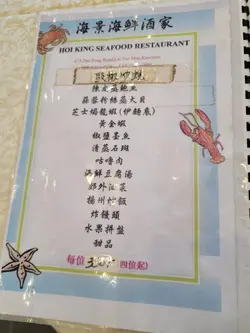 海景海鮮酒家
HOI KING SEAFOOD RESTAURANT
豉椒炒蜆
陳皮蒸鮑魚
蒜蓉粉絲蒸大貝
芝士焗龍蝦(伊麵底)
黃金蝦
椒鹽墨魚
清蒸石斑
咕嚕肉
海鮮豆腐湯
郊外油菜
揚州炒飯
炸饅頭
水果拼盤
甜品
每位 四位起)